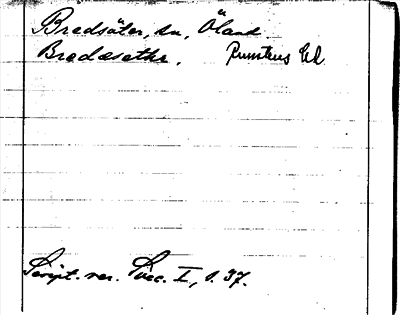 Bredsäter, sn, Öland
Bredæsethr. Runstens hd.
Script. rer. Svec. I, s. 37.